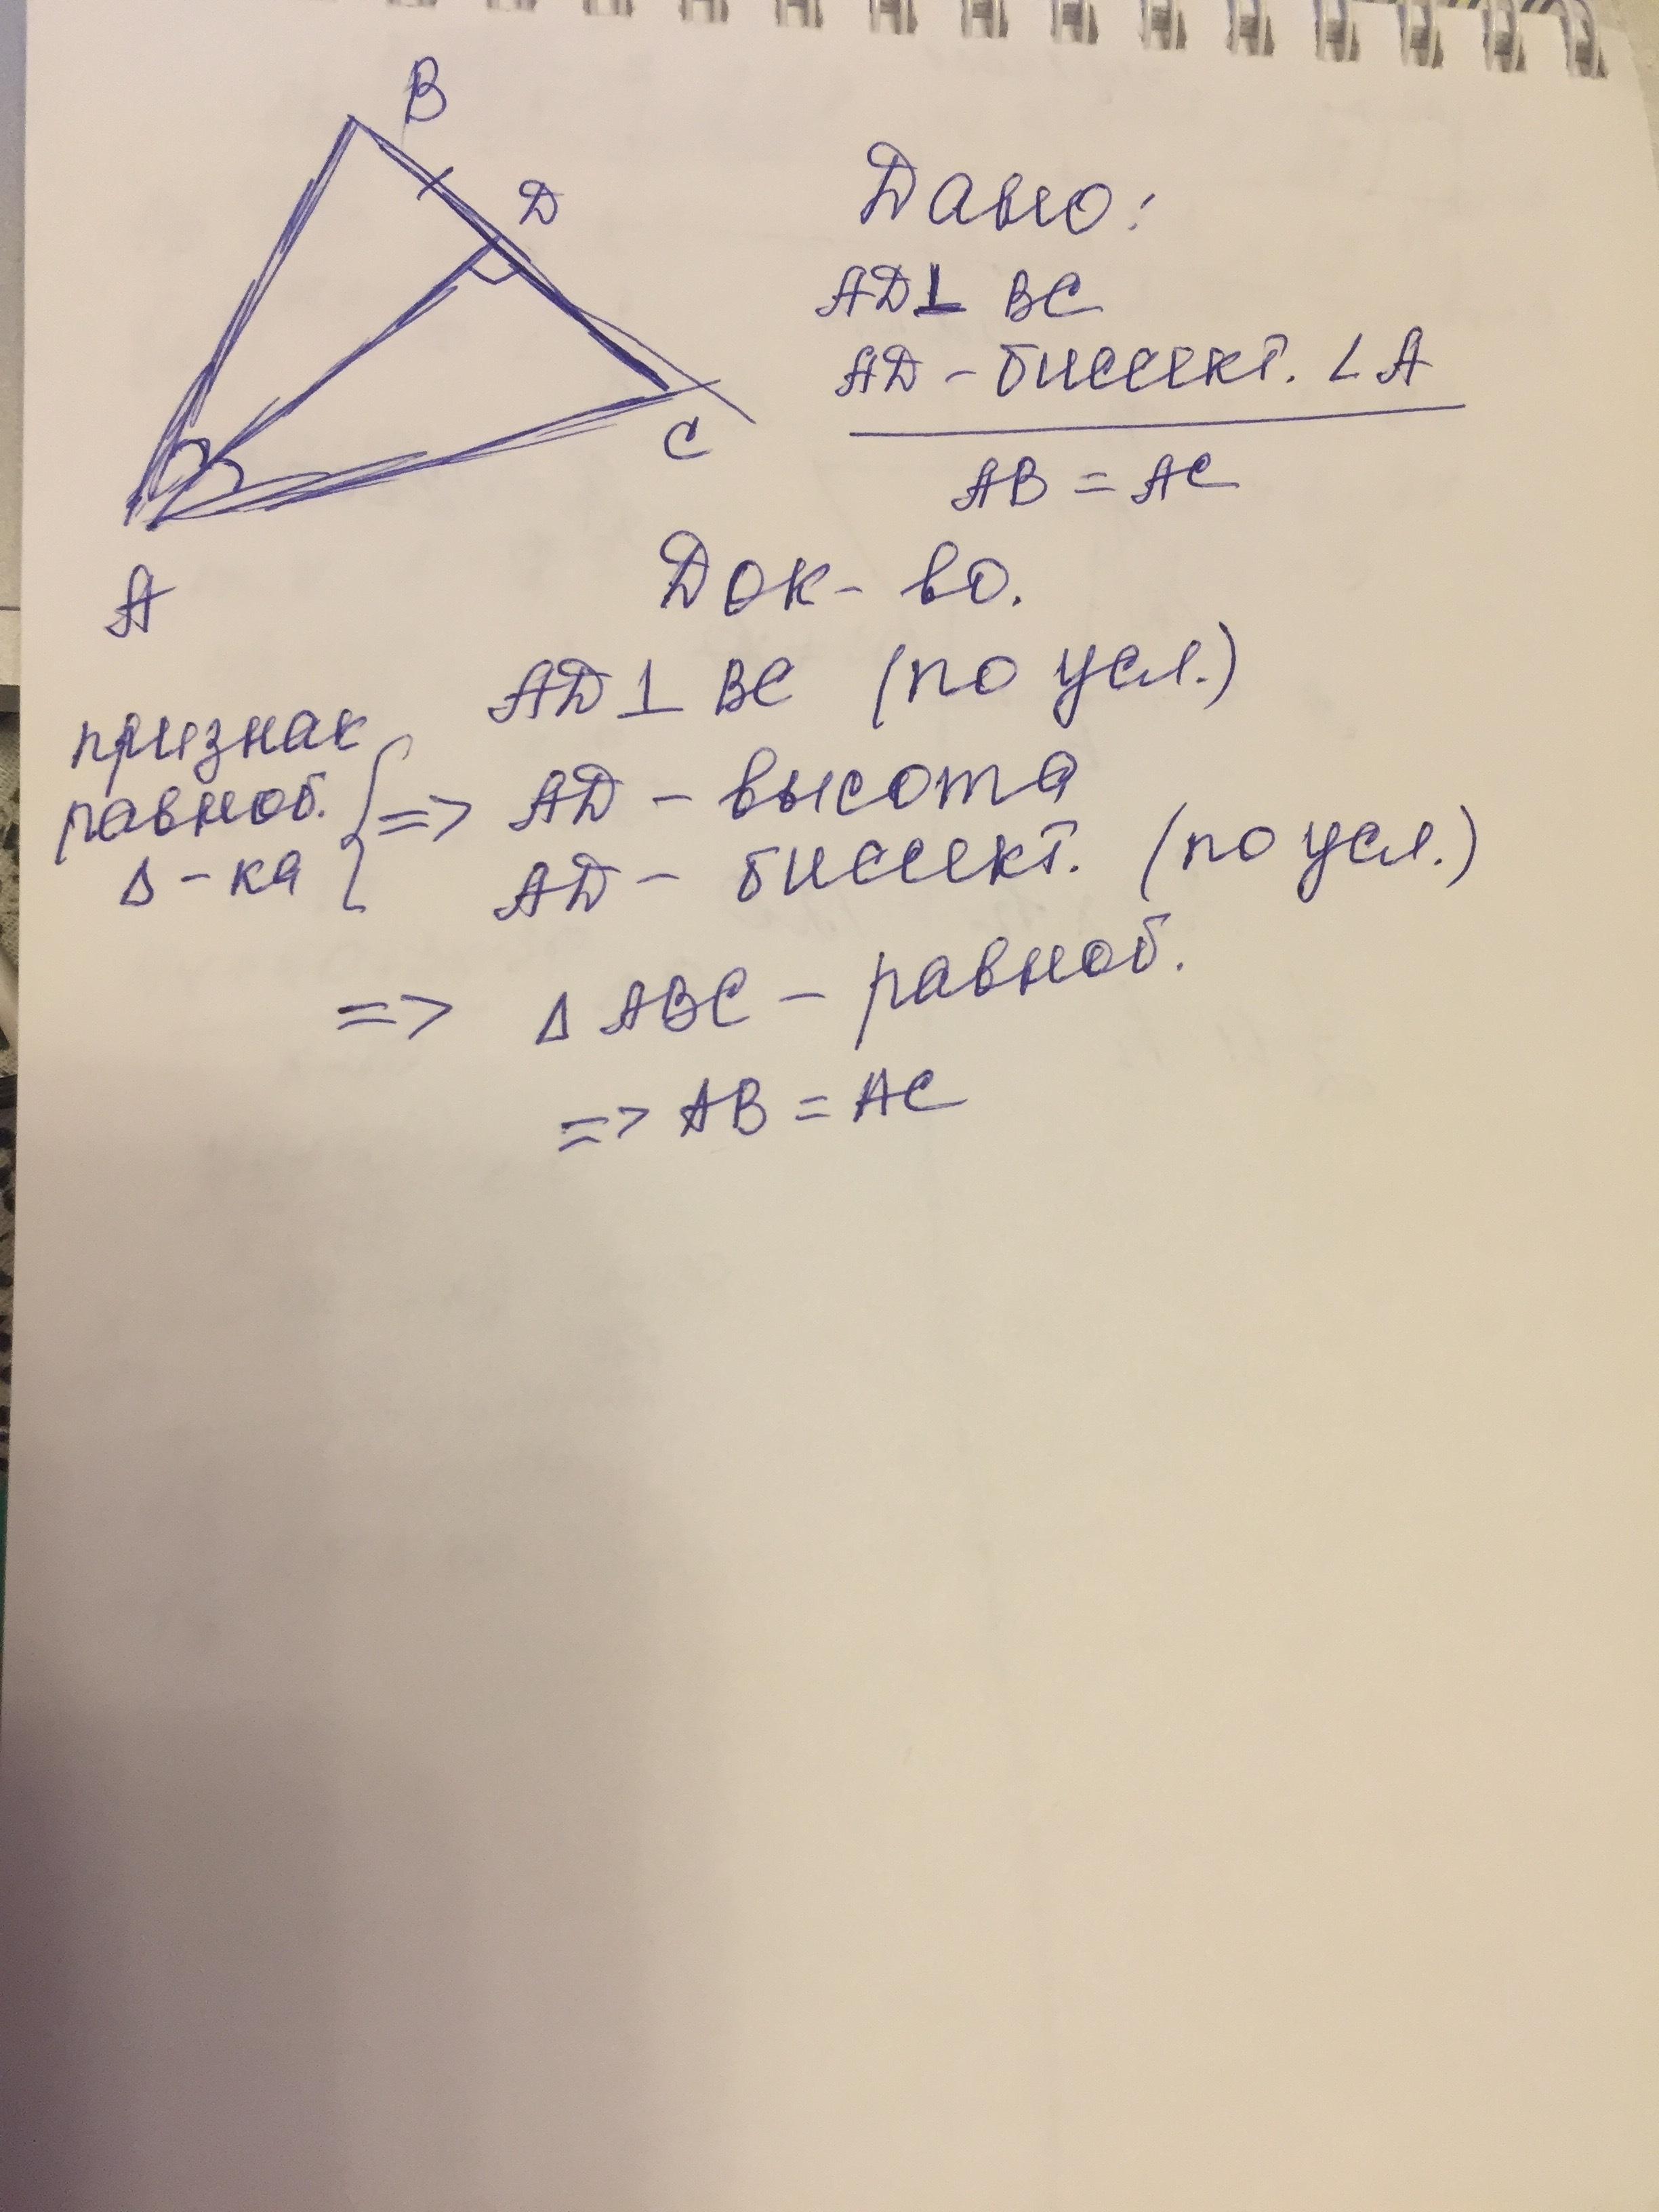 B
D
C
A
Дано:
AD ⊥ BC
AD - биссект. ∠A
AB = AC
Док-во.
AD ⊥ BC (по усл.)
признак
равноб.
Δ-ка
=> AD - высота
AD - биссект. (по усл.)
=> Δ ABC - равноб.
=> AB = AC